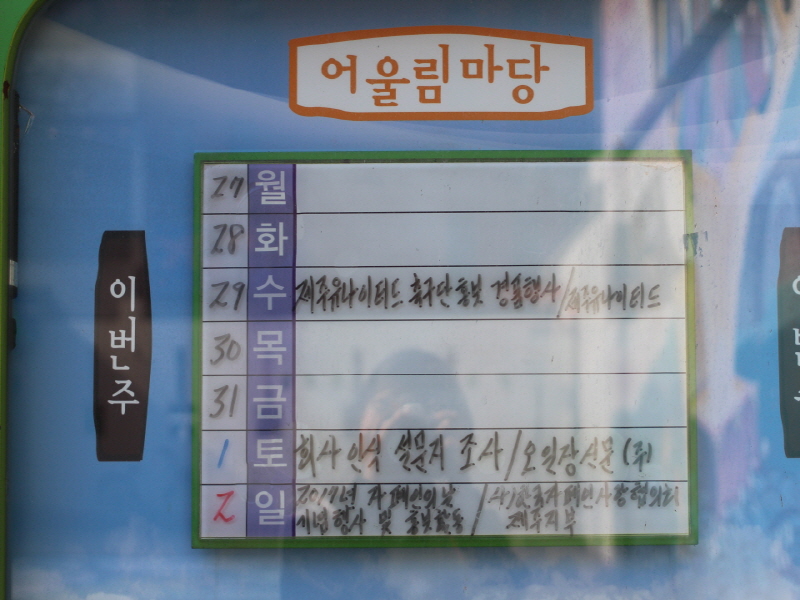 어울림마당
이번주
27 월
28 화
29 수 제주유나이티드 축구단 홍보 경품행사/제주유나이티드
30 목
31 금
1 토 회사 인식 설문지 조사/오일장신문(주)
2 일 2017년 자폐인의 날 / 사)한국자폐인사랑협회
기념행사 및 홍보활동 제주지부